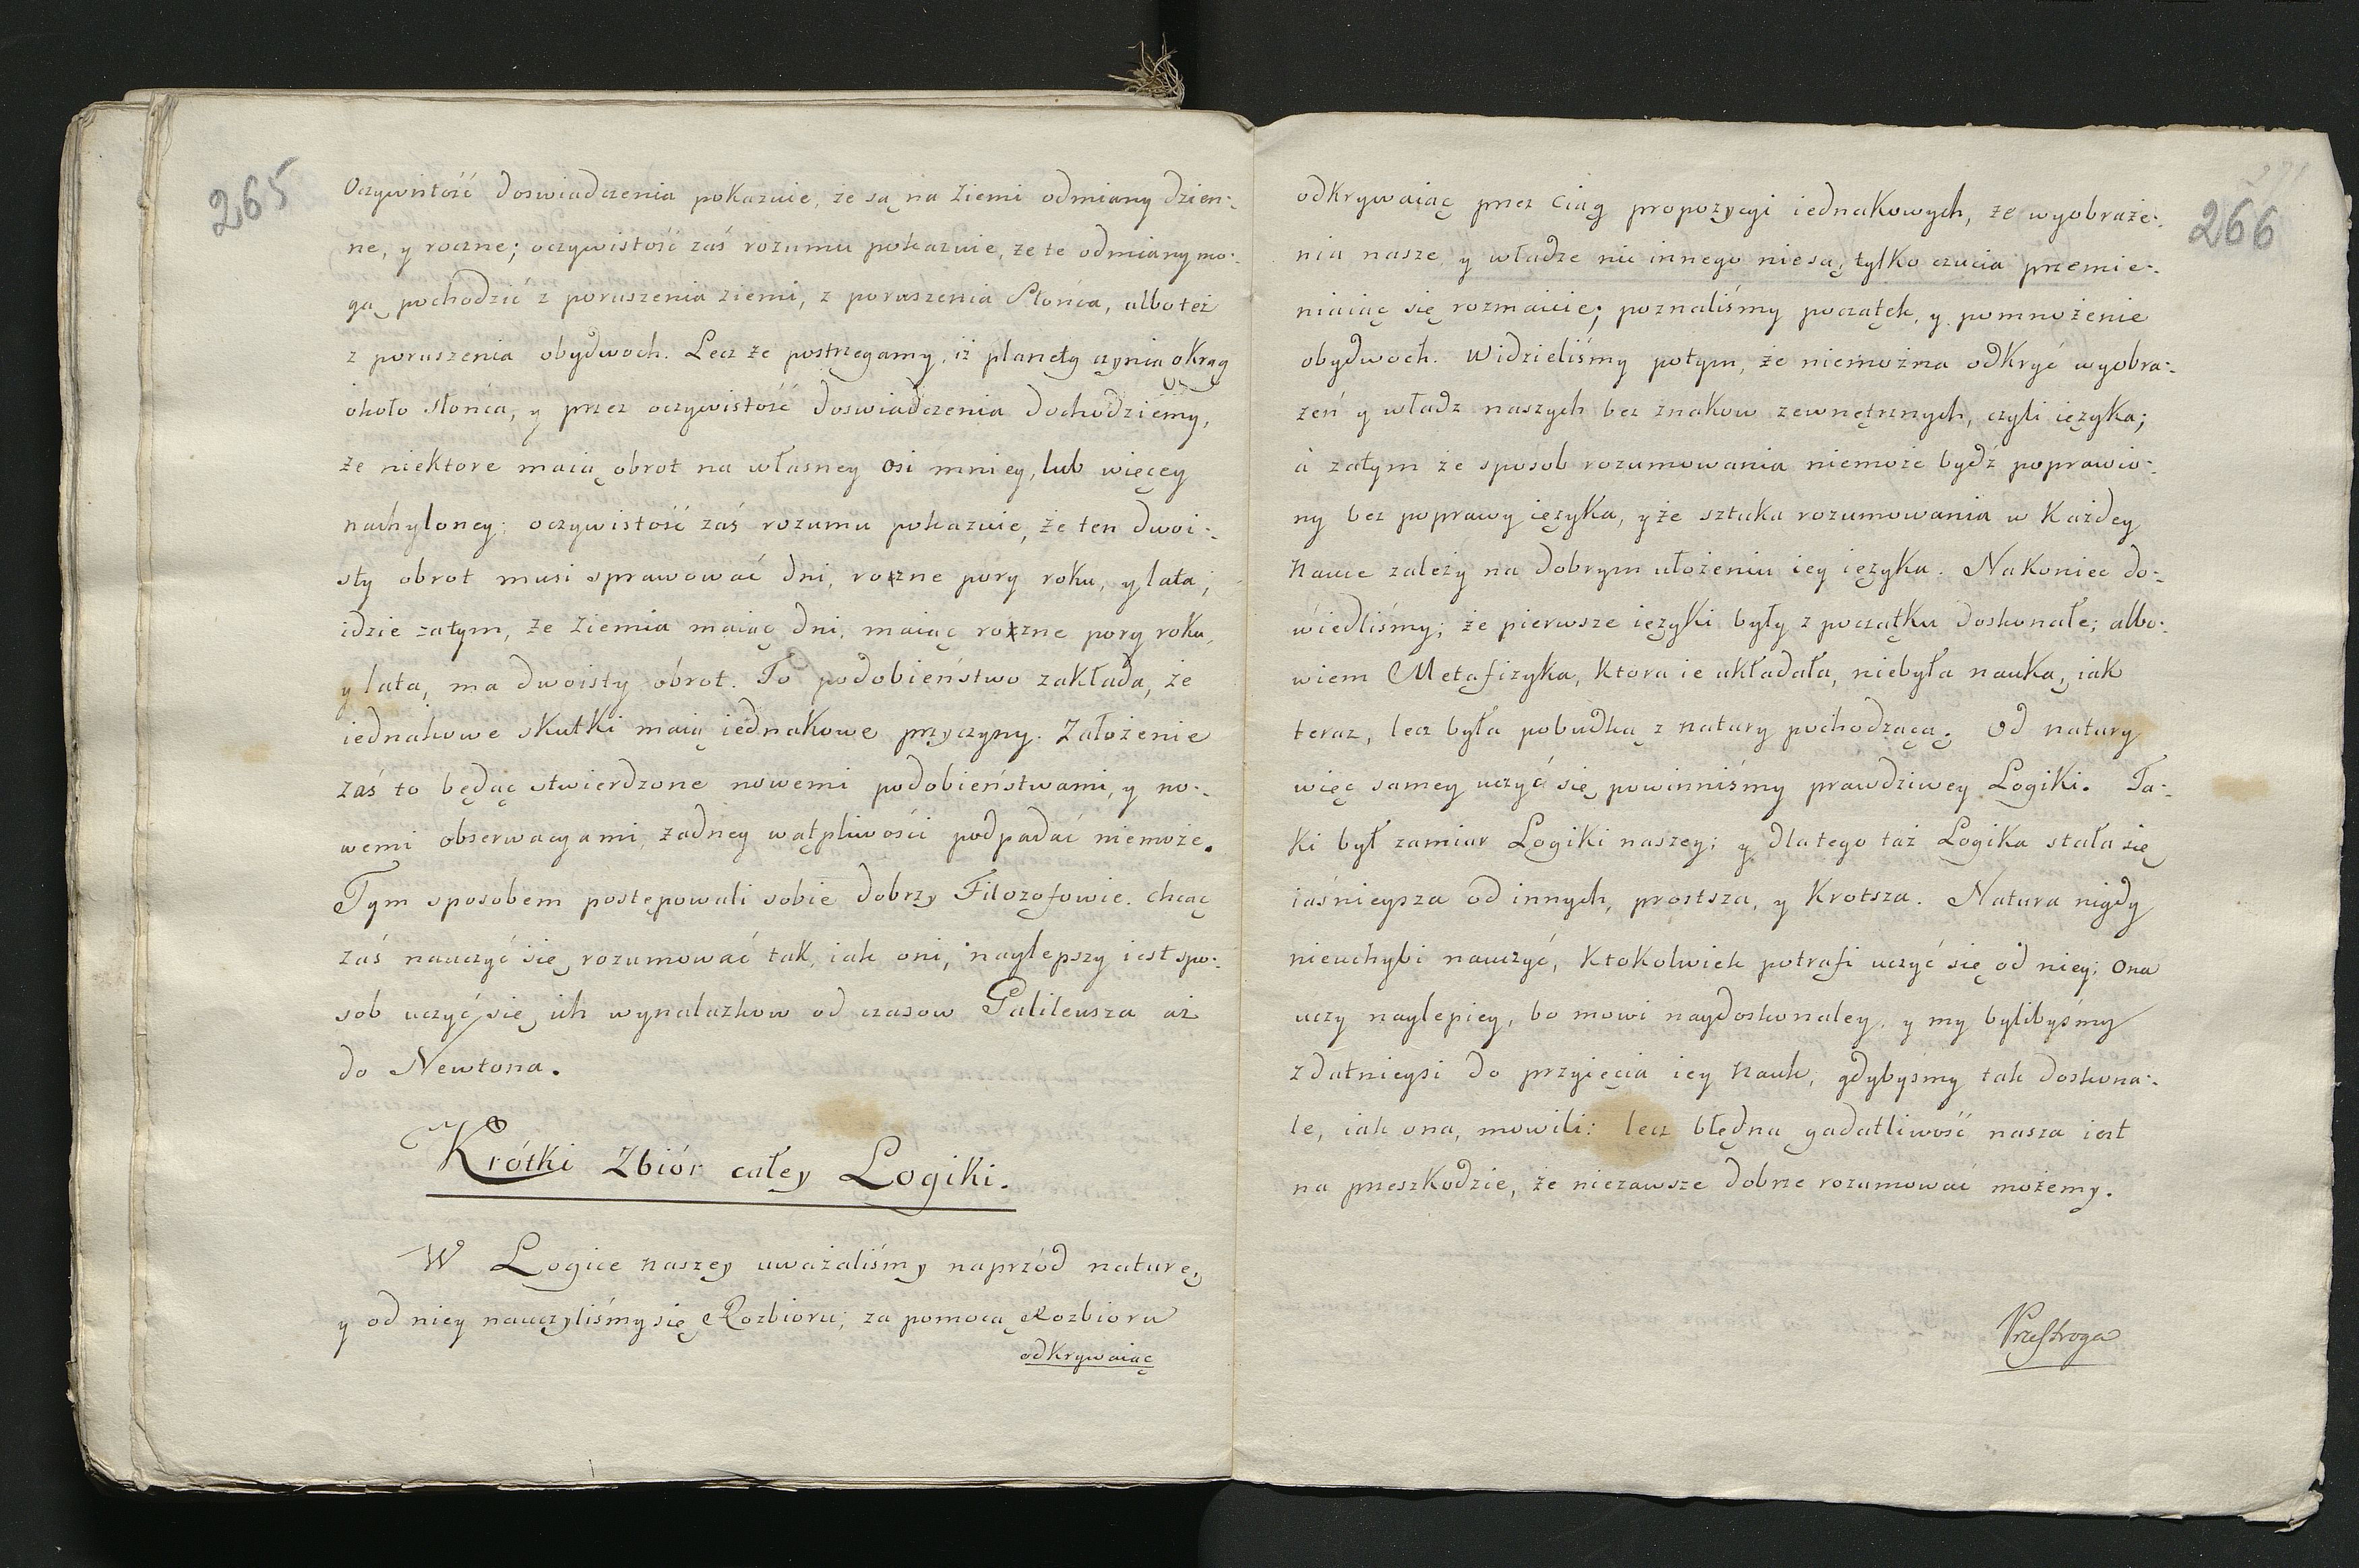 265
Oczywistość doswiadczenia pokazuie, że są na Ziemi odmiany dzien-
ne, y roczne; oczywistość zaś rozumu pokazuie, że te odmiany mo-
gą pochodzić z poruszenia ziemi, z poruszenia Słońca, albo też
z poruszenia obydwoch. Lecz że postrzegamy, iż planety czynią okrąg
około słońca, y przez oczywistość doswiadczenia dochodziemy,
że niektore maią obrot na własney osi mniey, lub więcey
nachyloney; oczywistość zaś rozumu pokazuie, że ten dwoi-
sty obrot musi sprawować dni, rożne pory roku, y lata;
idzie zatym, że Ziemia maiąc dni, maiąc rożne pory roku,
y lata, ma dwoisty obrot. To podobieństwo zakłada, że
iednakowe skutki maią iednakowe przyczyny. Założenie
zaś to będąc stwierdzone nowemi podobieństwami, y no-
wemi obserwacyami, żadney wątpliwości podpadać niemoże.
Tym sposobem postępowali sobie dobrzy Filozofowie. Chcąc
zaś nauczyć się rozumować tak, iak oni, naylepszy iest spo-
sob uczyć się ich wynalazkow od czasow Galileusza aż
do Newtona.
Krótki Zbiór całey Logiki.
W Logice naszey uważaliśmy naprzód naturę,
y od niey nauczyliśmy się Rozbioru; za pomocą Rozbioru
odkrywaiąc
271
266
odkrywaiąc przez Ciąg propozycyi iednakowych, że wyobraże-
nia nasze, y władze nic innego nie są, tylko czucia przemie-
niaiąc się rozmaicie; poznaliśmy początek, y pomnożenie
obydwoch. Widzieliśmy potym, że niemożna odkryć wyobra-
żeń y władz naszych bez znakow zewnętrznych, czyli ięzyka;
à zatym że sposob rozumowania niemoże bydź poprawio-
ny bez poprawy ięzyka, y że sztuka rozumowania w każdey
Nauce zależy na dobrym ułożeniu iey ięzyka. Nakoniec do-
wiedliśmy; że pierwsze ięzyki były z początku doskonałe; albo-
wiem Metafizyka, ktora ie układała, niebyła nauką, iak
teraz, lecz była pobudką z natury pochodzącą. Od natury
więc samey uczyć się powinniśmy prawdziwey Logiki. Ta-
ki był zamiar Logiki naszey; y dlatego taż Logika stała się
iaśnieysza od innych, prostsza, y Krotsza. Natura nigdy
nieuchybi nauczyć, Ktokolwiek potrafi uczyć się od niey; Ona
uczy naylepiey, bo mowi naydoskonaley, y my bylibyśmy
zdatnieysi do przyięcia iey Nauk, gdybysmy tak doskona-
le, iak ona, mowili: lecz błędna gadatliwość nasza iest
na przeszkodzie, że niezawsze dobrze rozumować możemy.
Przestroga